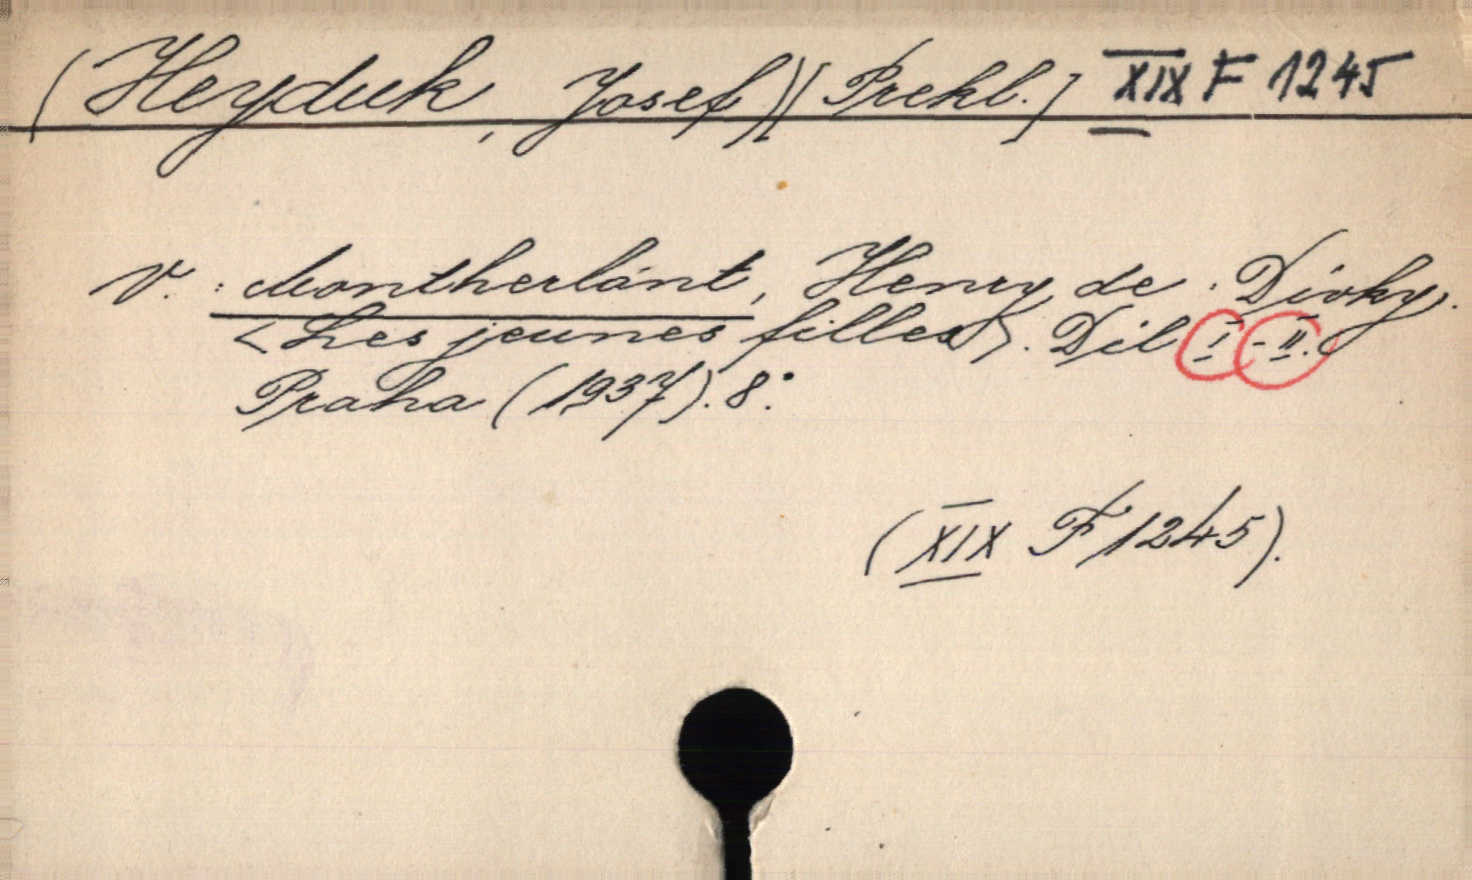 (Heyduk, Josef)[Prekl.] XIX F 1245
v. : Montherlánt, Henry de. Dívky.
<Les jeunes filles>. Díl I - II.
Praha (1937). 8°.
(XIX F 1245).